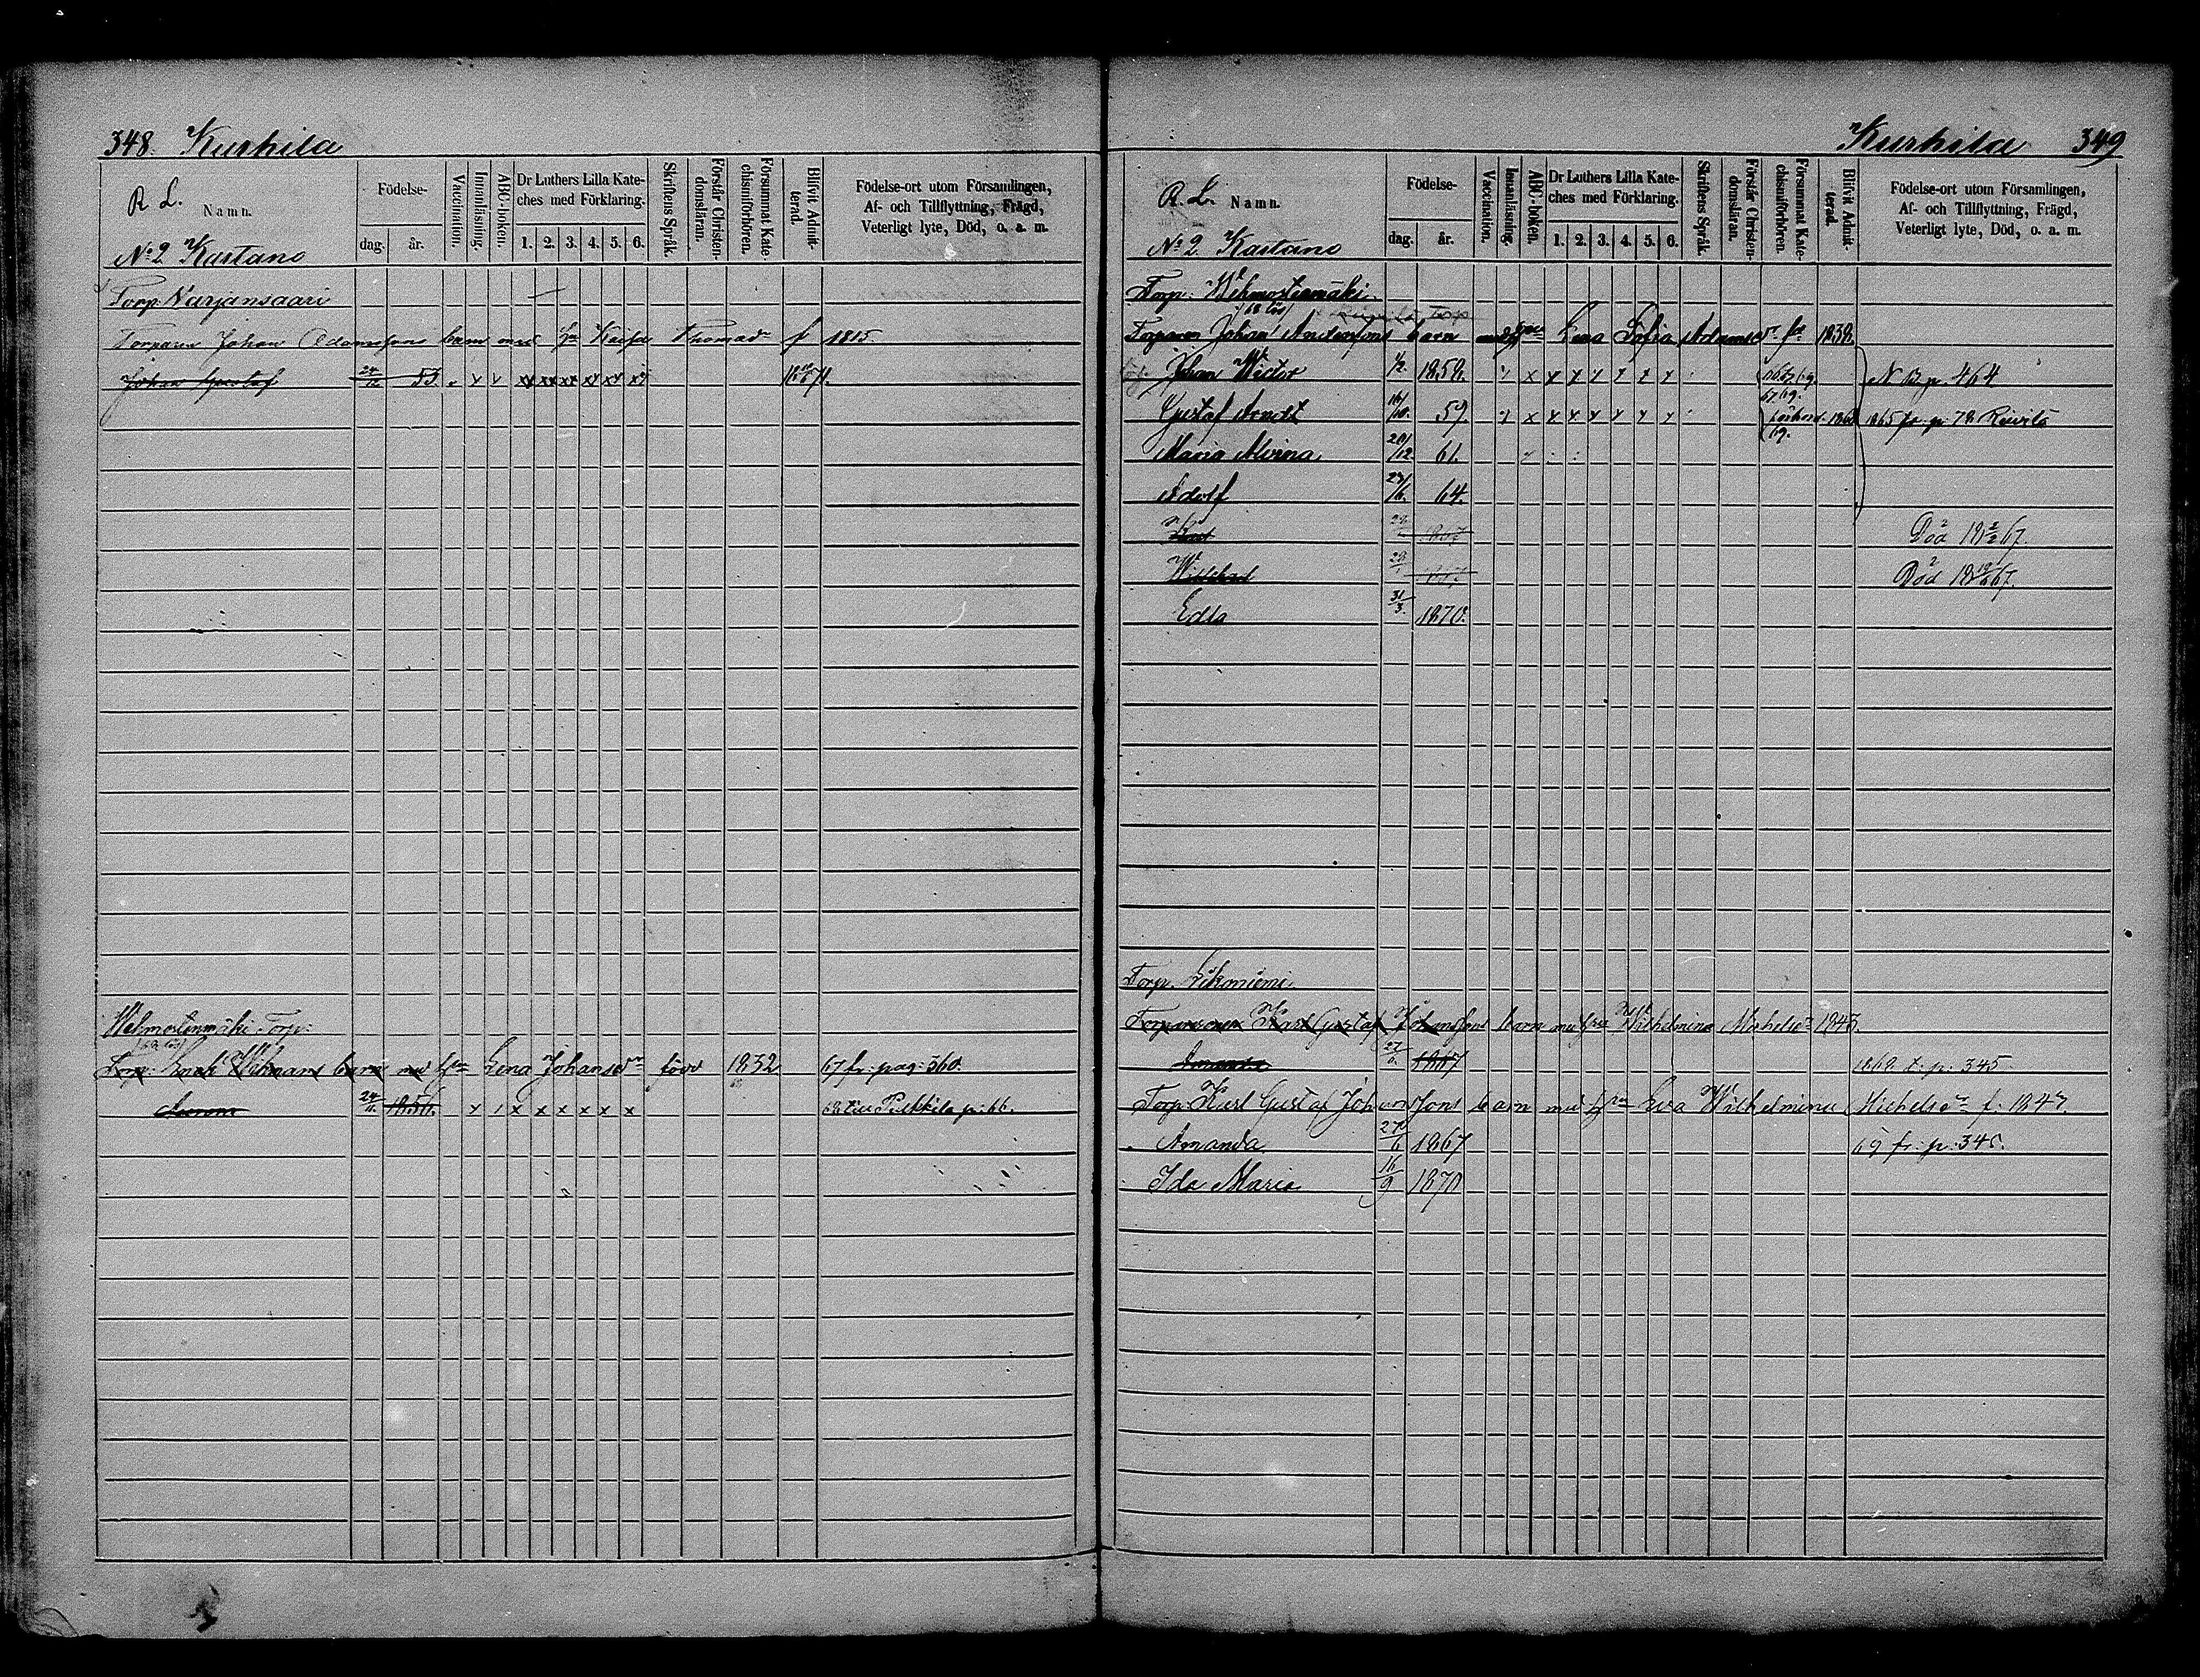 348. Kurhila
R. L. Namn.
Födelse-
dag.
år.
Vaccination.
Innanläsning.
ABC-boken.
Dr Luthers Lilla Kate-
ches med Förklaring.
1. 2. 3. 4. 5. 6.
Skriftens Språk.
Förstår Christen-
domsläran.
Försummat Kate-
chismiförhören.
Blifvit Admit-
terad.
Födelse-ort utom Församlingen,
Af- och Tillflyttning, Frägd,
Veterligt lyte, Död, o. a. m.
No 2 Kastano
Torp. Narjansaari
Torparen Johan Adamssons barn med Kaisa Thomasdr f 1815
Johan Gustaf 24/12 53. x x x x x x x x
Wehmostenmäki Torp.
Torp: Enok Wikmans barn med Lena Johansdr född 1832 67 fr. pag: 360.
24/11 1856. x x x x x x x till Pulkkila p: 66.
Kurhila 349
R. L. Namn.
Födelse-
dag.
år.
Vaccination.
Innanläsning.
ABC-boken.
Dr Luthers Lilla Kate-
ches med Förklaring.
1. 2. 3. 4. 5. 6.
Skriftens Språk.
Förstår Christen-
domsläran.
Försummat Kate-
chismiförhören.
Blifvit Admit-
terad.
Födelse-ort utom Församlingen,
Af- och Tillflyttning, Frägd,
Veterligt lyte, Död, o. a. m.
No 2 Kastano
Torp. Wehmostenmäki.
Torparen Johan Andersons barn med Lena Sofia Adamsdr 1838.
Johan Wictor 1/2 1858. x x x x x x x N B p. 464
Gustaf Arvidt 16/10. 59. x x x x x x x 1865 fr p: 78
Maria Alvina 20/12 61.
Adolf 27/6. 64.
Karl 28 1867 Död 18 2/2 67.
29 Död 67.
Edla 31/3. 1870.
Torp. Likoniemi
Torparesonen Karl Gustaf Johanssons barn med Wilhelmina Michelsdr 1843.
Amanda 27/6. 1867 t. p: 345
Torp. Karl Gustaf Johanssons barn med Eva Wilhelmina Michelsdr f: 1843.
Amanda 27/6 1867 69 fr: p: 345.
Ida Maria 16/9 1870